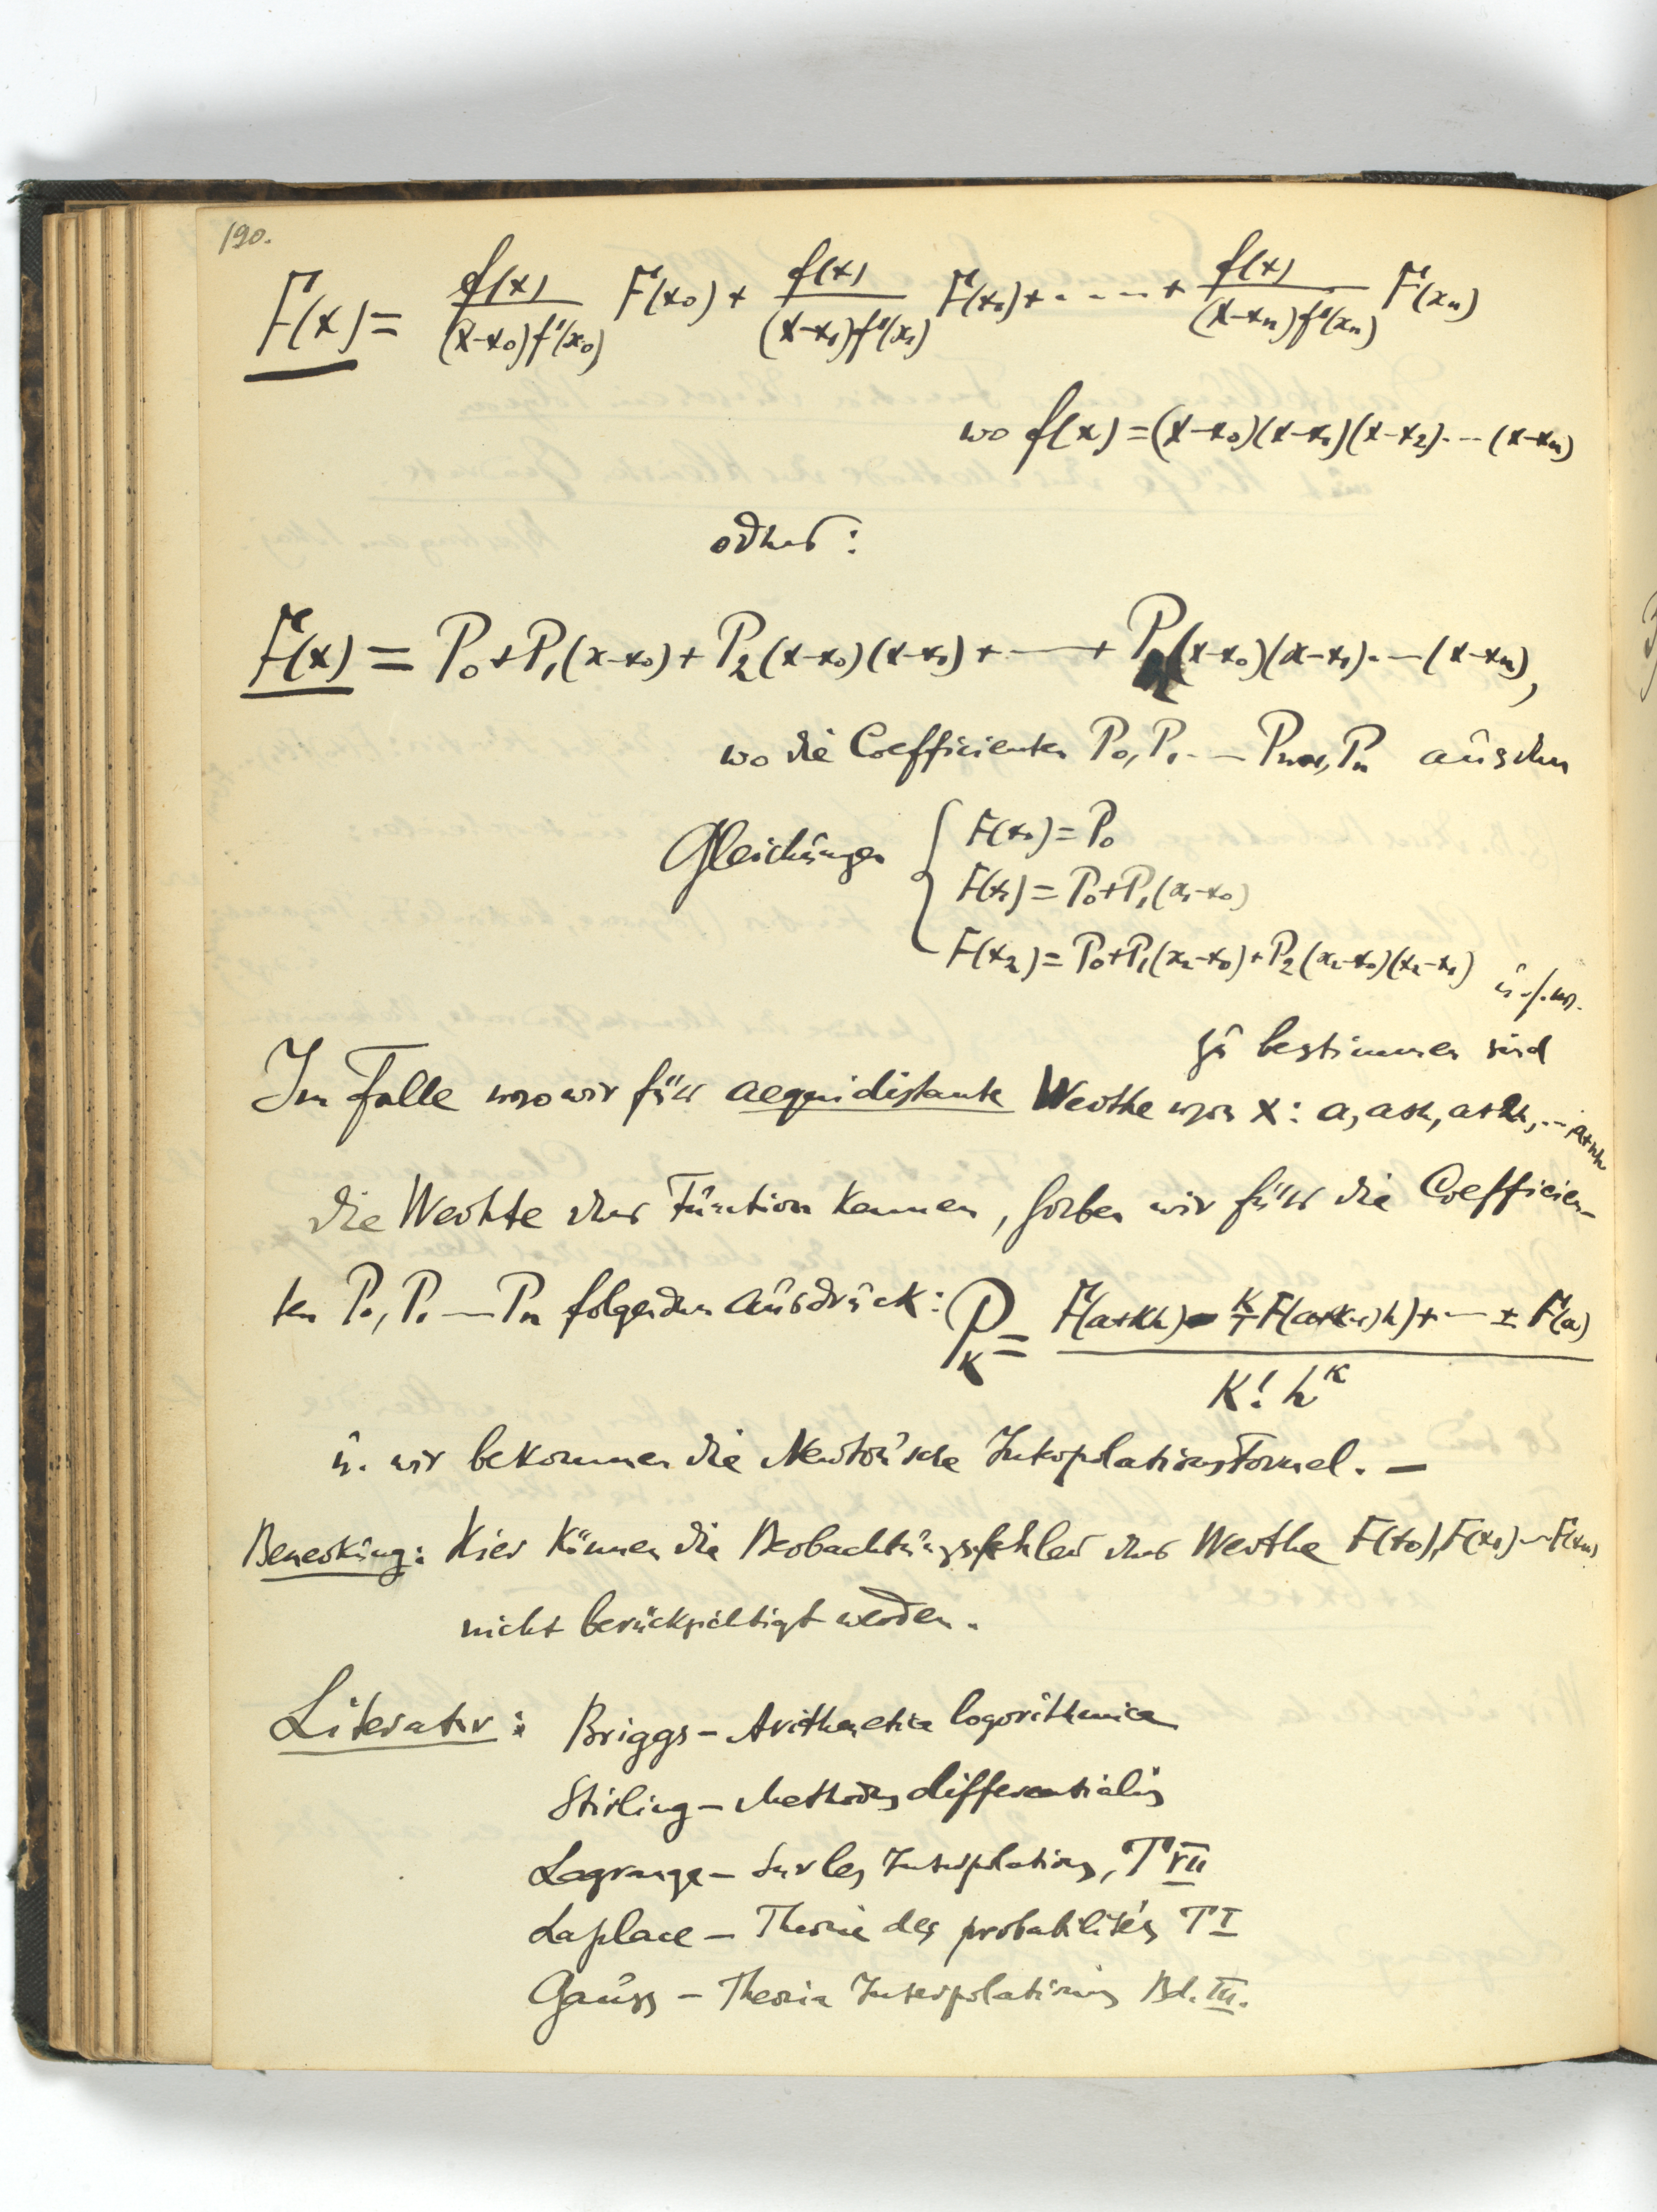 190.
F(x) = f(x)/((x-x₀)f'(x₀)) F(x₀) + f(x)/((x-x₁)f'(x₁)) F(x₁) + - - - - + f(x)/((x-xₙ)f'(xₙ)) F(xₙ)
wo f(x) = (x-x₀)(x-x₁)(x-x₂)- -- (x-xₙ)
oder:
F(x) = P₀+P₁(x-x₀)+P₂(x-x₀)(x-x₁)+ - — + Pₙ(x-x₀)(x-x₁)- — (x-xₙ),
wo die Coefficienten P₀, P₁ - — Pₙ₋₁, Pₙ aus den
Gleichungen { F(x₀) = P₀
F(x₁) = P₀+P₁(x₁-x₀)
F(x₂) = P₀+P₁(x₂-x₀)+P₂(x₂-x₀)(x₂-x₁) u.s.w.
zu bestimmen sind
Im Falle wo wir für aequidistante Werthe von x: a, a+h, a+2h, -- a+nh
die Werthe der Function kennen, haben wir für die Coefficien-
ten P₀, P₁ — Pₙ folgenden Ausdruck: P_K = (F(a+Kh) - K/1 F(a+(K-1)h) + - — ± F(a)) / (K! h^K)
u. wir bekommen die Newton'sche Interpolationsformel. —
Bemerkung: Hier können die Beobachtungsfehler der Werthe F(x₀), F(x₁) -- F(xₙ)
nicht berücksichtigt werden.
Literatur: Briggs - Arithmetica logarithmica
Stirling - Methodus differentialis
Lagrange - Sur les Interpolations, T VII
Laplace - Theorie des probabilités T I
Gauss - Theoria Interpolationis Bd. III.